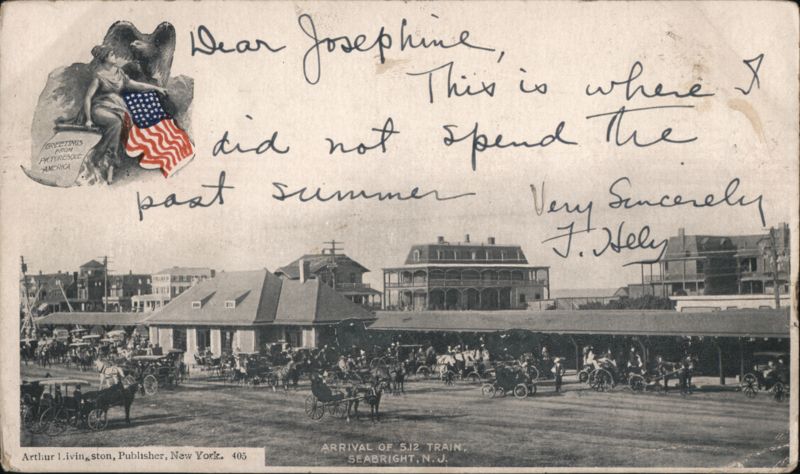 Dear Josephine,
This is where I
did not spend the
past summer
Very Sincerely
F. Hely
GREETINGS
FROM
PICTURESQUE
AMERICA
ARRIVAL OF 5.12 TRAIN,
SEABRIGHT, N. J.
Arthur Livingston, Publisher, New York. 405